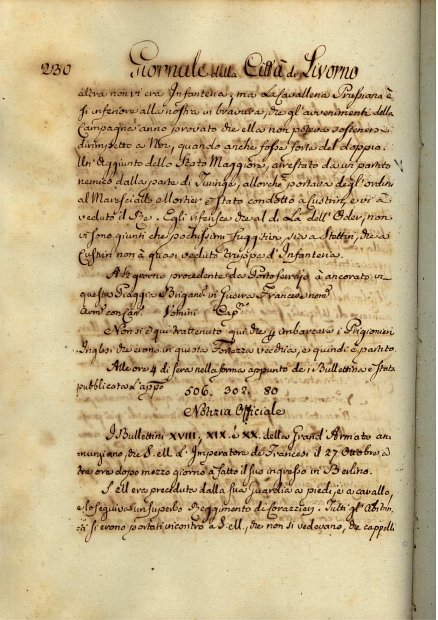 230 Giornale della Città di Livorno
altra non vi era Infanteria; ma La Cavalleria Prussiana è
sì inferiore alla nostra in bravura, che gl'avvenimenti della
Campagna anno provato che ella non poteva sostenersi
dirimpetto a Noi, quando anche fosse forte del doppio.
Un' Aggiunto dello Stato Maggiore, arrestato da un partito
nemico dalla parte di Turinga, allorchè portava degl'ordini
al Maresciallo Mortier, è stato condotto a Custrin, e vi à
veduto il Re. Egli riferisce che al di Là dell' Oder, non
vi sono giunti che pochissimi fuggitivi, sia a Stettin, che a
Custrin non à quasi veduto truppe d'Infanteria.
giorno precedente da Portoferrajo à ancorato in
questa Piaggia Brigant.º in Guerra Francese nom.º
con Can.ⁱ Uomini Cap.º
Non si è qui trattenuto qui che p imbarcare i Prigionieri
Inglesi che erono in questa Fortezza vecchia, e quindi è partito.
Alle ore 4 di sera nella forma appunto de i Bullettini è stata
pubblicata L'appº
506. 302. 80
Notizia Officiale
I Bullettini XVIII, XIX. è XX. della Grand'Armata an
nunziano, che S. M. L'Imperatore de Francesi il 27 Ottobre, a
tre ore dopo mezzo giorno à fatto il suo ingresso in Berlino.
S. M. era preceduta dalla sua Guardia a piedi, e a cavallo,
e lo seguiva un superbo Reggimento di Corazzieri. Tutti gl' Abitan
ti si erono portati incontro a S. M., che non si vedevano, che cappelli